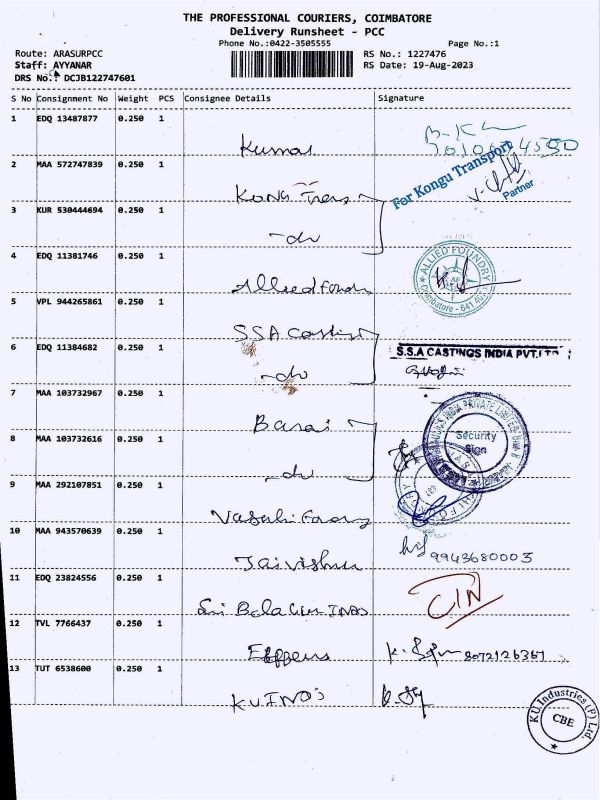 THE PROFESSIONAL COURIERS, COIMBATORE
Delivery Runsheet - PCC
Phone No.:0422-3505555 Page No.:1
Route: ARASURPCC RS No.: 1227476
Staff: AYYANAR RS Date: 19-Aug-2023
DRS No.: DCJB122747601
S No Consignment No Weight PCS Consignee Details Signature
1 EDQ 13487877 0.250 1
Kumar
2 MAA 572747839 0.250 1
For Kongu Transport
Partner
3 KUR 530444694 0.250 1
-do
4 EDQ 11381746 0.250 1
ALLIED FOUNDRY
Coimbatore - 641 40
5 VPL 944265861 0.250 1
SSA Casting
6 EDQ 11384682 0.250 1
S.S.A CASTINGS INDIA PVT.LTD
-do
7 MAA 103732967 0.250 1
8 MAA 103732616 0.250 1
Security
Sign
-do
9 MAA 292107851 0.250 1
10 MAA 943570639 0.250 1
9943680003
Jaivishnu
11 EDQ 23824556 0.250 1
12 TVL 7766437 0.250 1
8072126367
13 TUT 6538600 0.250 1
K.U.INDS
KU Industries (P) Ltd.
CBE